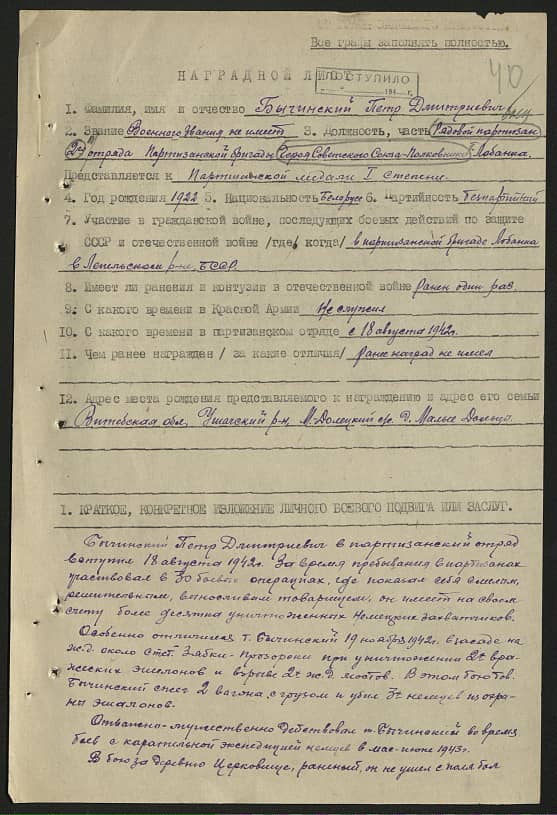 Все графы заполнять полностью.
НАГРАДНОЙ ЛИСТ
ПОСТУПИЛО
194 г.
40
1. Фамилия, имя и отчество Бычинский Петр Дмитриевич
2. Звание Военного звания не имеет 3. Должность, часть Рядовой партизан
2го отряда Партизанской бригады Героя Советского Союза-Полковника Лобанка.
Представляется к Партизанской медали I степени.
4. Год рождения 1922 5. Национальность Белорус 6. Партийность Безпартийный
7. Участие в гражданской войне, последующих боевых действий по защите
СССР и отечественной войне /где, когда/ в партизанской бригаде Лобанка
в Лепельском р-не, БССР.
8. Имеет ли ранения и контузии в отечественной войне Ранен один раз.
9. С какого времени в Красной Армии Не служил
10. С какого времени в партизанском отряде с 18 августа 1942г.
11. Чем ранее награжден /за какие отличия/ ранее наград не имел
12. Адрес места рождения представляемого к награждению и адрес его семьи
Витебская обл. Ушачский р-н, М.Долецкий с/с. д. Малые Дольцы.
1. КРАТКОЕ, КОНКРЕТНОЕ ИЗЛОЖЕНИЕ ЛИЧНОГО БОЕВОГО ПОДВИГА ИЛИ ЗАСЛУГ.
Бычинский Петр Дмитриевич в партизанский отряд
вступил 18 августа 1942г. За время пребывания в партизанах
участвовал в 30 боевых операциях, где показал себя смелым,
решительным, выносливым товарищем, он имеет на своем
счету более десятка уничтоженных немецких захватчиков.
Особенно отличился т. Бычинский 19 ноября 1942г. в засаде на
ж.д. около ст. Зябки-Прозороки при уничтожении 2х вра-
жеских эшелонов и взрыве 2х ж.д. мостов. В этом бою тов.
Бычинский сжег 2 вагона с грузом и убил 3х немцев из охра-
ны эшалонов.
Отважно-мужественно действовал т. Бычинский во время
боев с карательной экспедицией немцев в мае-июне 1943г.
В бою за деревню Церковище, раненый, он не ушел с поля боя